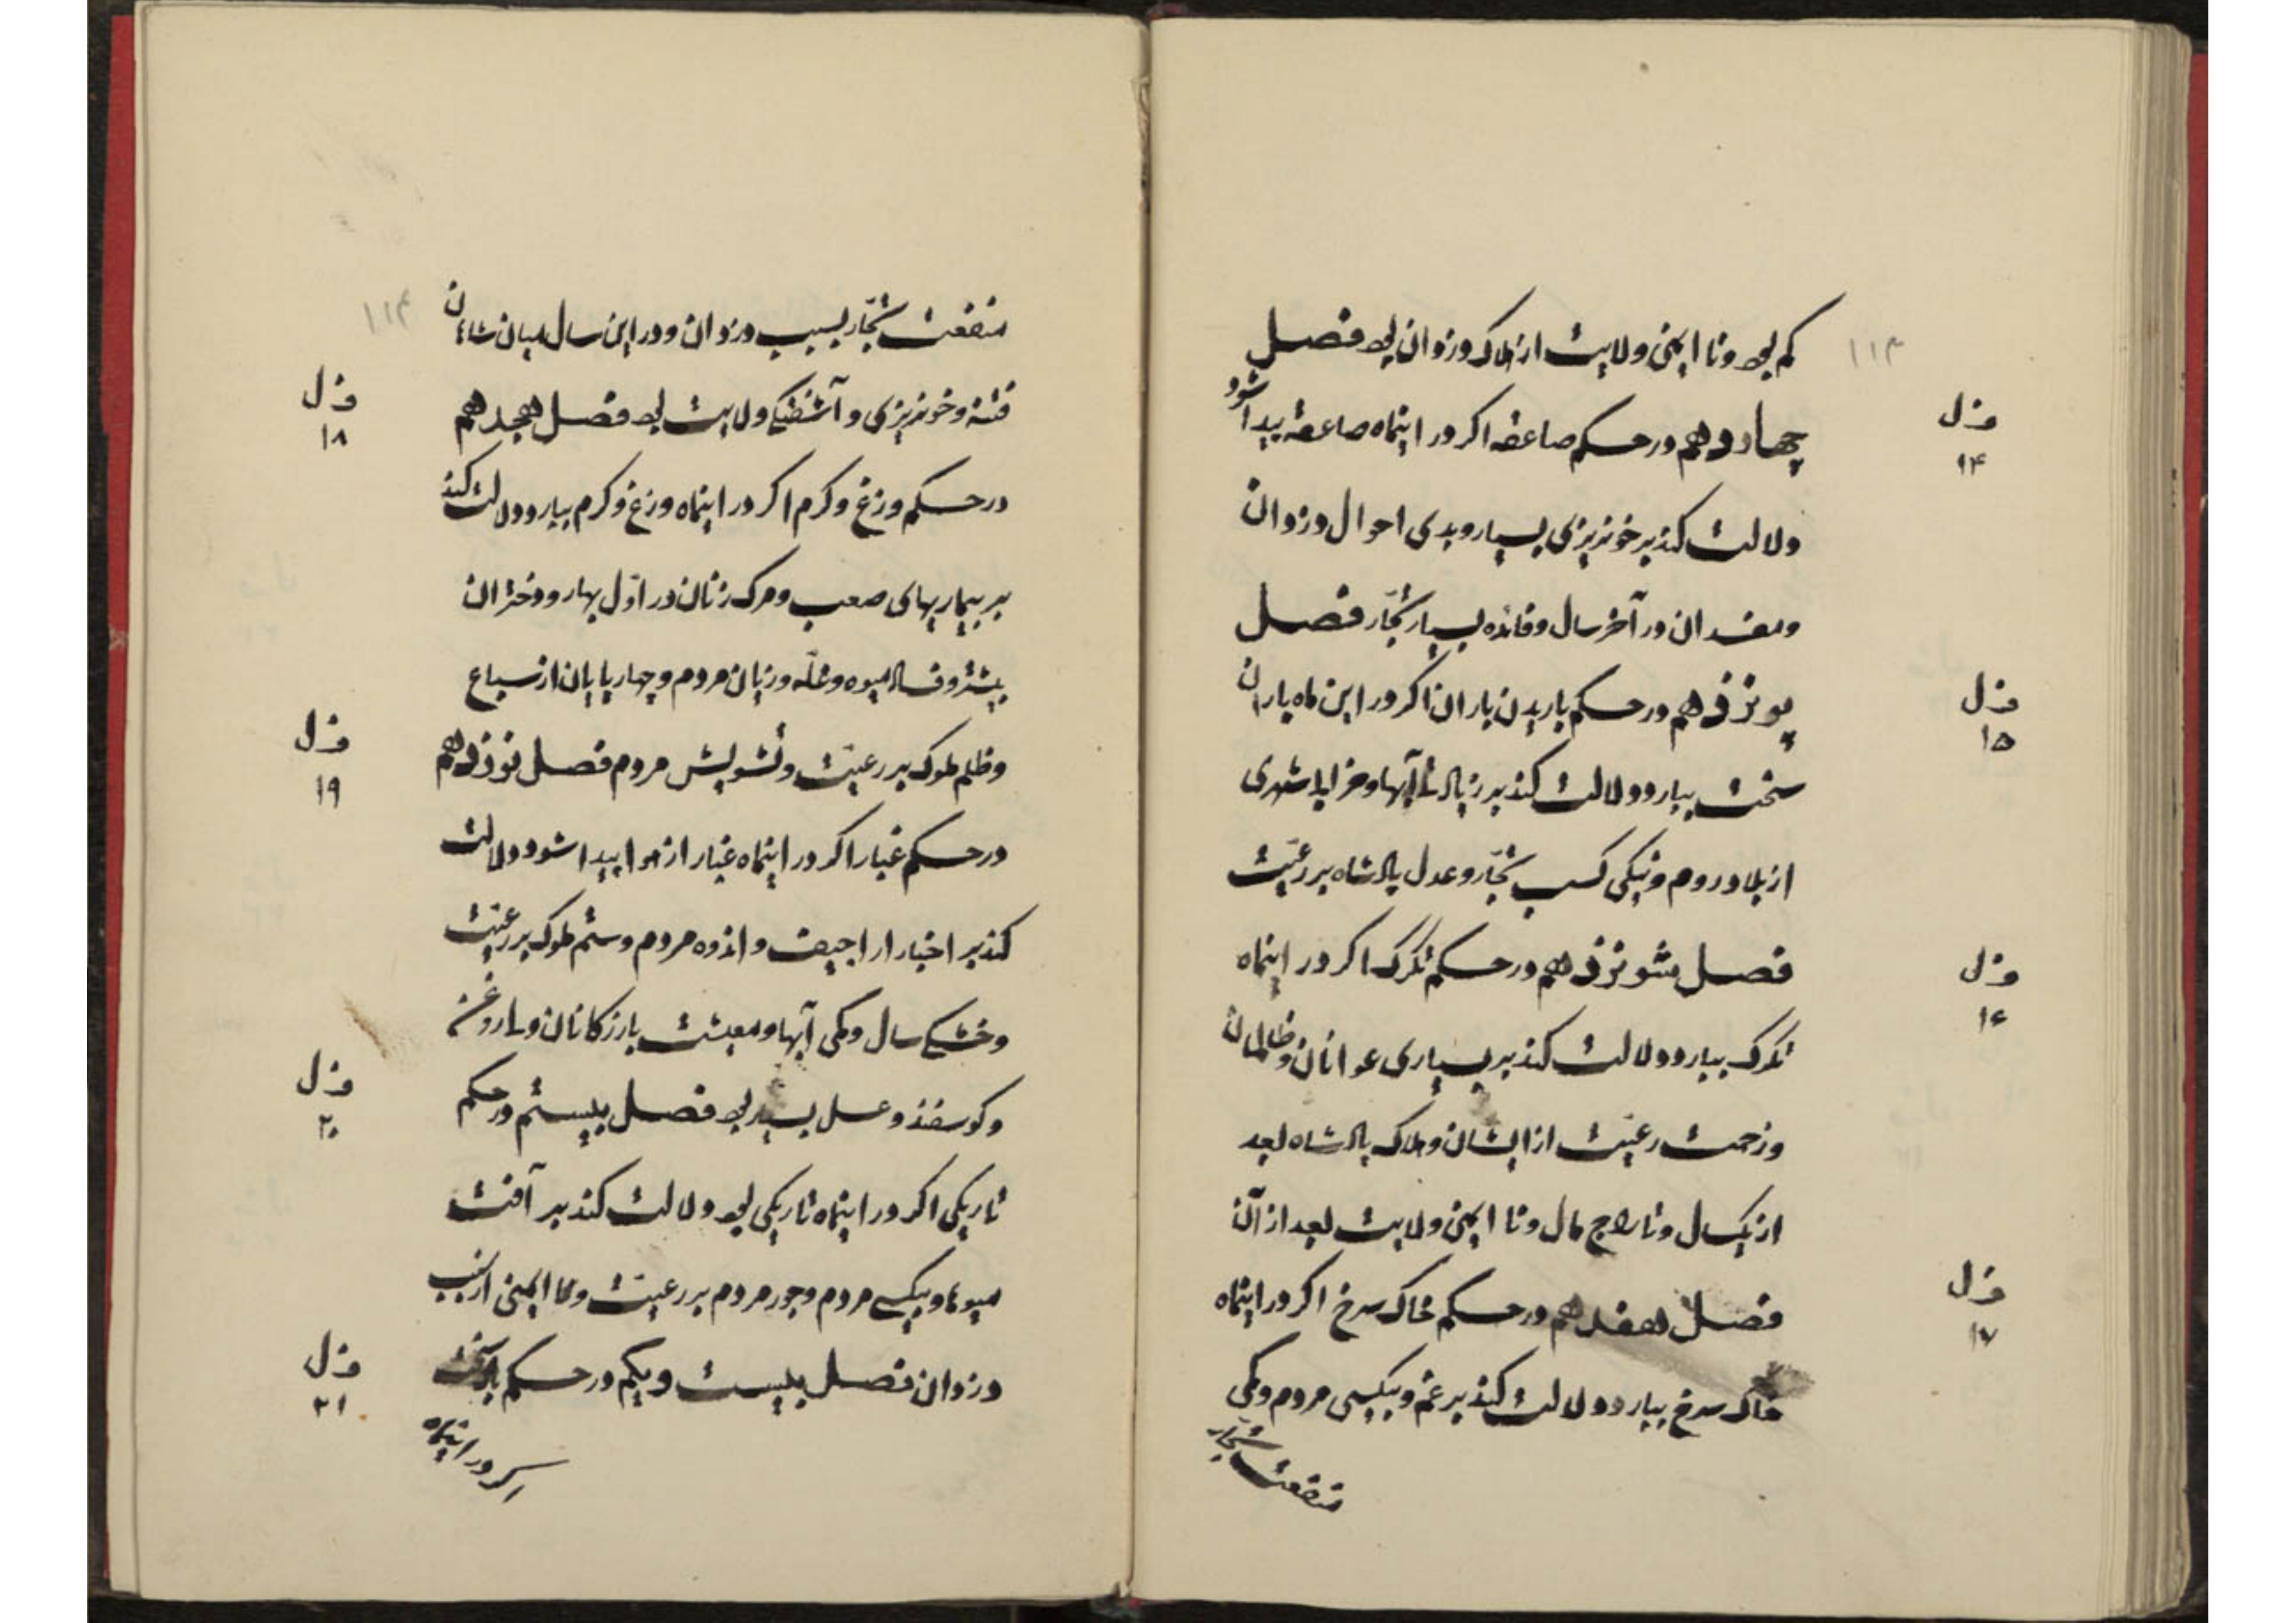 ۱۱۳
کم بود و نا ایمنی ولایت از هلاک دزدان بود فصل
چهاردهم در حکم صاعقه اکر در اینماه صاعقه پیدا شود
فصل
۱۴
دلالت کند بر خونریزی بسیار و بدی احوال دزدان
و مفسدان در آخر سال و فائده بسیار تجّار فصل
پونزدهم در حکم باریدن باران اکر در این ماه باران
فصل
۱۵
سخت ببارد دلالت کند بر زیادتی آبها و خرابی شهری
از بلاد روم و نیکی کسب تجّار و عدل پادشاه بر رعیّت
فصل شونزدهم در حکم تکرک اکر در اینماه
فصل
۱۶
تکرک ببارد دلالت کند بر بسیاری عوانان و ظالمان
و زحمت رعیّت از ایشان و هلاک پادشاه بعد
از یکسال و تاراج مال و نا ایمنی ولایت بعد از آن
فصل هفدهم در حکم خاک سرخ اکر در اینماه
فصل
۱۷
خاک سرخ ببارد دلالت کند بر غم و بیکسی مردم و کمی
منفعت تجّار
۱۱۴
منفعت تجّار بسبب دزدان و در این سال میان شاهان
فتنه و خونریزی و آشفتکی ولایت بود فصل هجدهم
فصل
۱۸
در حکم وزغ و کرم اکر در اینماه وزغ و کرم ببارد دلالت کند
بر بیماریهای صعب و مرک زنان در اوّل بهار و دختران
بیشتر و فساد میوه و غلّه و زیان مردم و چهارپایان از سباع
و ظلم ملوک بر رعیّت و تشویش مردم فصل نوزدهم
فصل
۱۹
در حکم غبار اکر در اینماه غبار از هوا پیدا شود دلالت
کند بر اخبار اراجیف و اندوه مردم و ستم ملوک بر رعیّت
و خشکی سال و کمی آبها و معیشت بازرکانان و روغن
و کوسفند و عسل بسیار بود فصل بیستم در حکم
فصل
۲۰
تاریکی اکر در اینماه تاریکی بود دلالت کند بر آفت
میوها و بیکسی مردم و جور مردم بر رعیّت و نا ایمنی از سبب
دزدان فصل بیست و یکم در حکم باد سخت
فصل
۲۱
اکر در اینماه